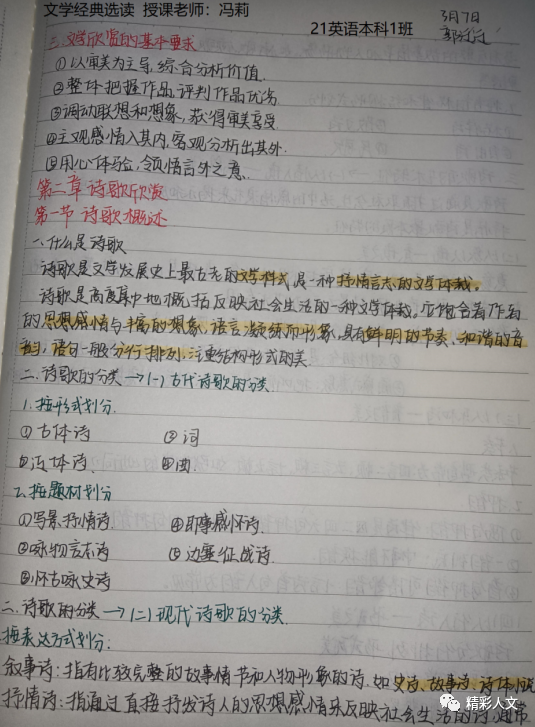 文学经典选读 授课老师：冯莉
21英语本科1班
3月7日
三、文学欣赏的基本要求
①以审美为主导，综合分析价值.
②整体把握作品，评判作品优劣
③调动联想和想象，获得审美享受.
④主观感情入其内，客观分析出其外.
⑤用心体验，领悟言外之意.
第二章 诗歌欣赏
第一节 诗歌概述
一、什么是诗歌
诗歌是文学发展史上最古老的文学样式，是一种抒情言志的文学体裁.
诗歌是高度集中地概括反映社会生活的一种文学体裁，它饱含着作者
的思想感情与丰富的想象，语言凝练而形象，具有鲜明的节奏、和谐的音
韵，语句一般分行排列，注重结构形式的美.
二、诗歌的分类→(一)古代诗歌的分类.
1.按形式划分.
①古体诗 ③词
②近体诗 ④曲.
2.按题材划分
①写景抒情诗. ④即事感怀诗.
②咏物言志诗 ⑤边塞征战诗.
③怀古咏史诗
二、诗歌的分类→(二)现代诗歌的分类.
按表达方式划分:
叙事诗:指有比较完整的故事情节和人物形象的诗.如史诗、故事诗、诗体小说
抒情诗:指通过直接抒发诗人的思想感情来反映社会生活的诗,通常
精彩人文